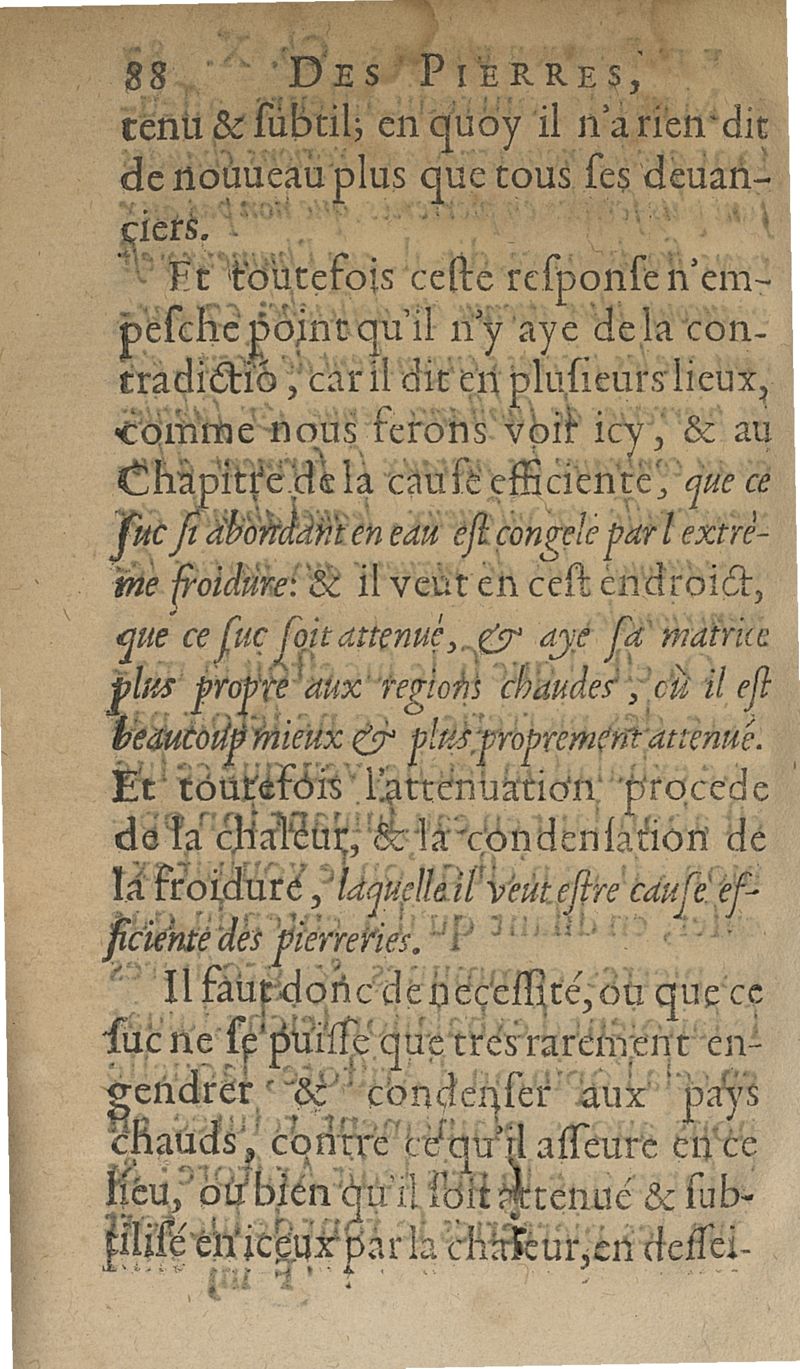 88 DES PIERRES,
tenu & ſubtil; en quoy il n'a rien dit
de nouueau plus que tous ſes deuan-
ciers.
Et toutefois ceſte reſponſe n'em-
peſche point qu'il n'y aye de la con-
tradictiō, car il dit en pluſieurs lieux,
comme nous ferons voir icy, & au
Chapitre de la cauſe efficiente, que ce
ſuc ſi abondant en eau eſt congelé par l'extré-
me froidure: & il veut en ceſt endroict,
que ce ſuc ſoit attenué, & aye ſa matrice
plus propre aux regions chaudes, où il eſt
beaucoup mieux & plus proprement attenué.
Et toutefois l'attenuation procede
de la chaleur, & la condenſation de
la froidure, laquelle il veut eſtre cauſe ef-
ficiente des pierreries.
Il faut donc de neceſſité, ou que ce
ſuc ne ſe puiſſe que tres rarement en-
gendrer & condenſer aux pays
chauds, contre ce qu'il aſſeure en ce
lieu, ou bien qu'il ſoit attenué & ſub-
tiliſé en iceux par la chaleur, en deſſei-